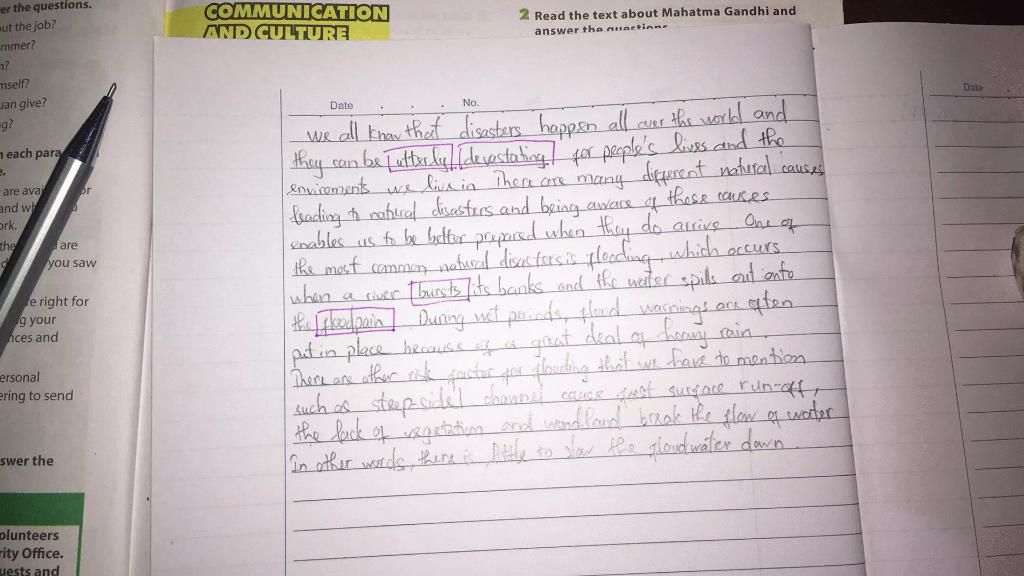 er the questions.
ut the job?
mmer?
n?
mself?
uan give?
g?
n each para
e.
are avai or
and wh
ork.
the are
you saw
e right for
g your
nces and
ersonal
ering to send
swer the
olunteers
rity Office.
uests and
COMMUNICATION
AND CULTURE
2 Read the text about Mahatma Gandhi and
answer the questions
Date . . . No.
we all know that disasters happen all over the world and
they can be utterly devastating for people's lives and the
enviroments we live in There are many different natural causes
leading to natural disasters and being aware of these causes
enables us to be better prepared when they do arrive One of
the most common natural disasters is flooding, which occurs
when a river bursts its banks and the water spills out onto
the floodpain . During wet periods, flood warnings are often
put in place because of a great deal of heavy rain .
There are other risk factor for flooding that we have to mention
such as steep-sided channel cause fast surface run-off,
the lack of vegetation and woodland break the flow of water
In other words, there is little to slow the floodwater down .
Date